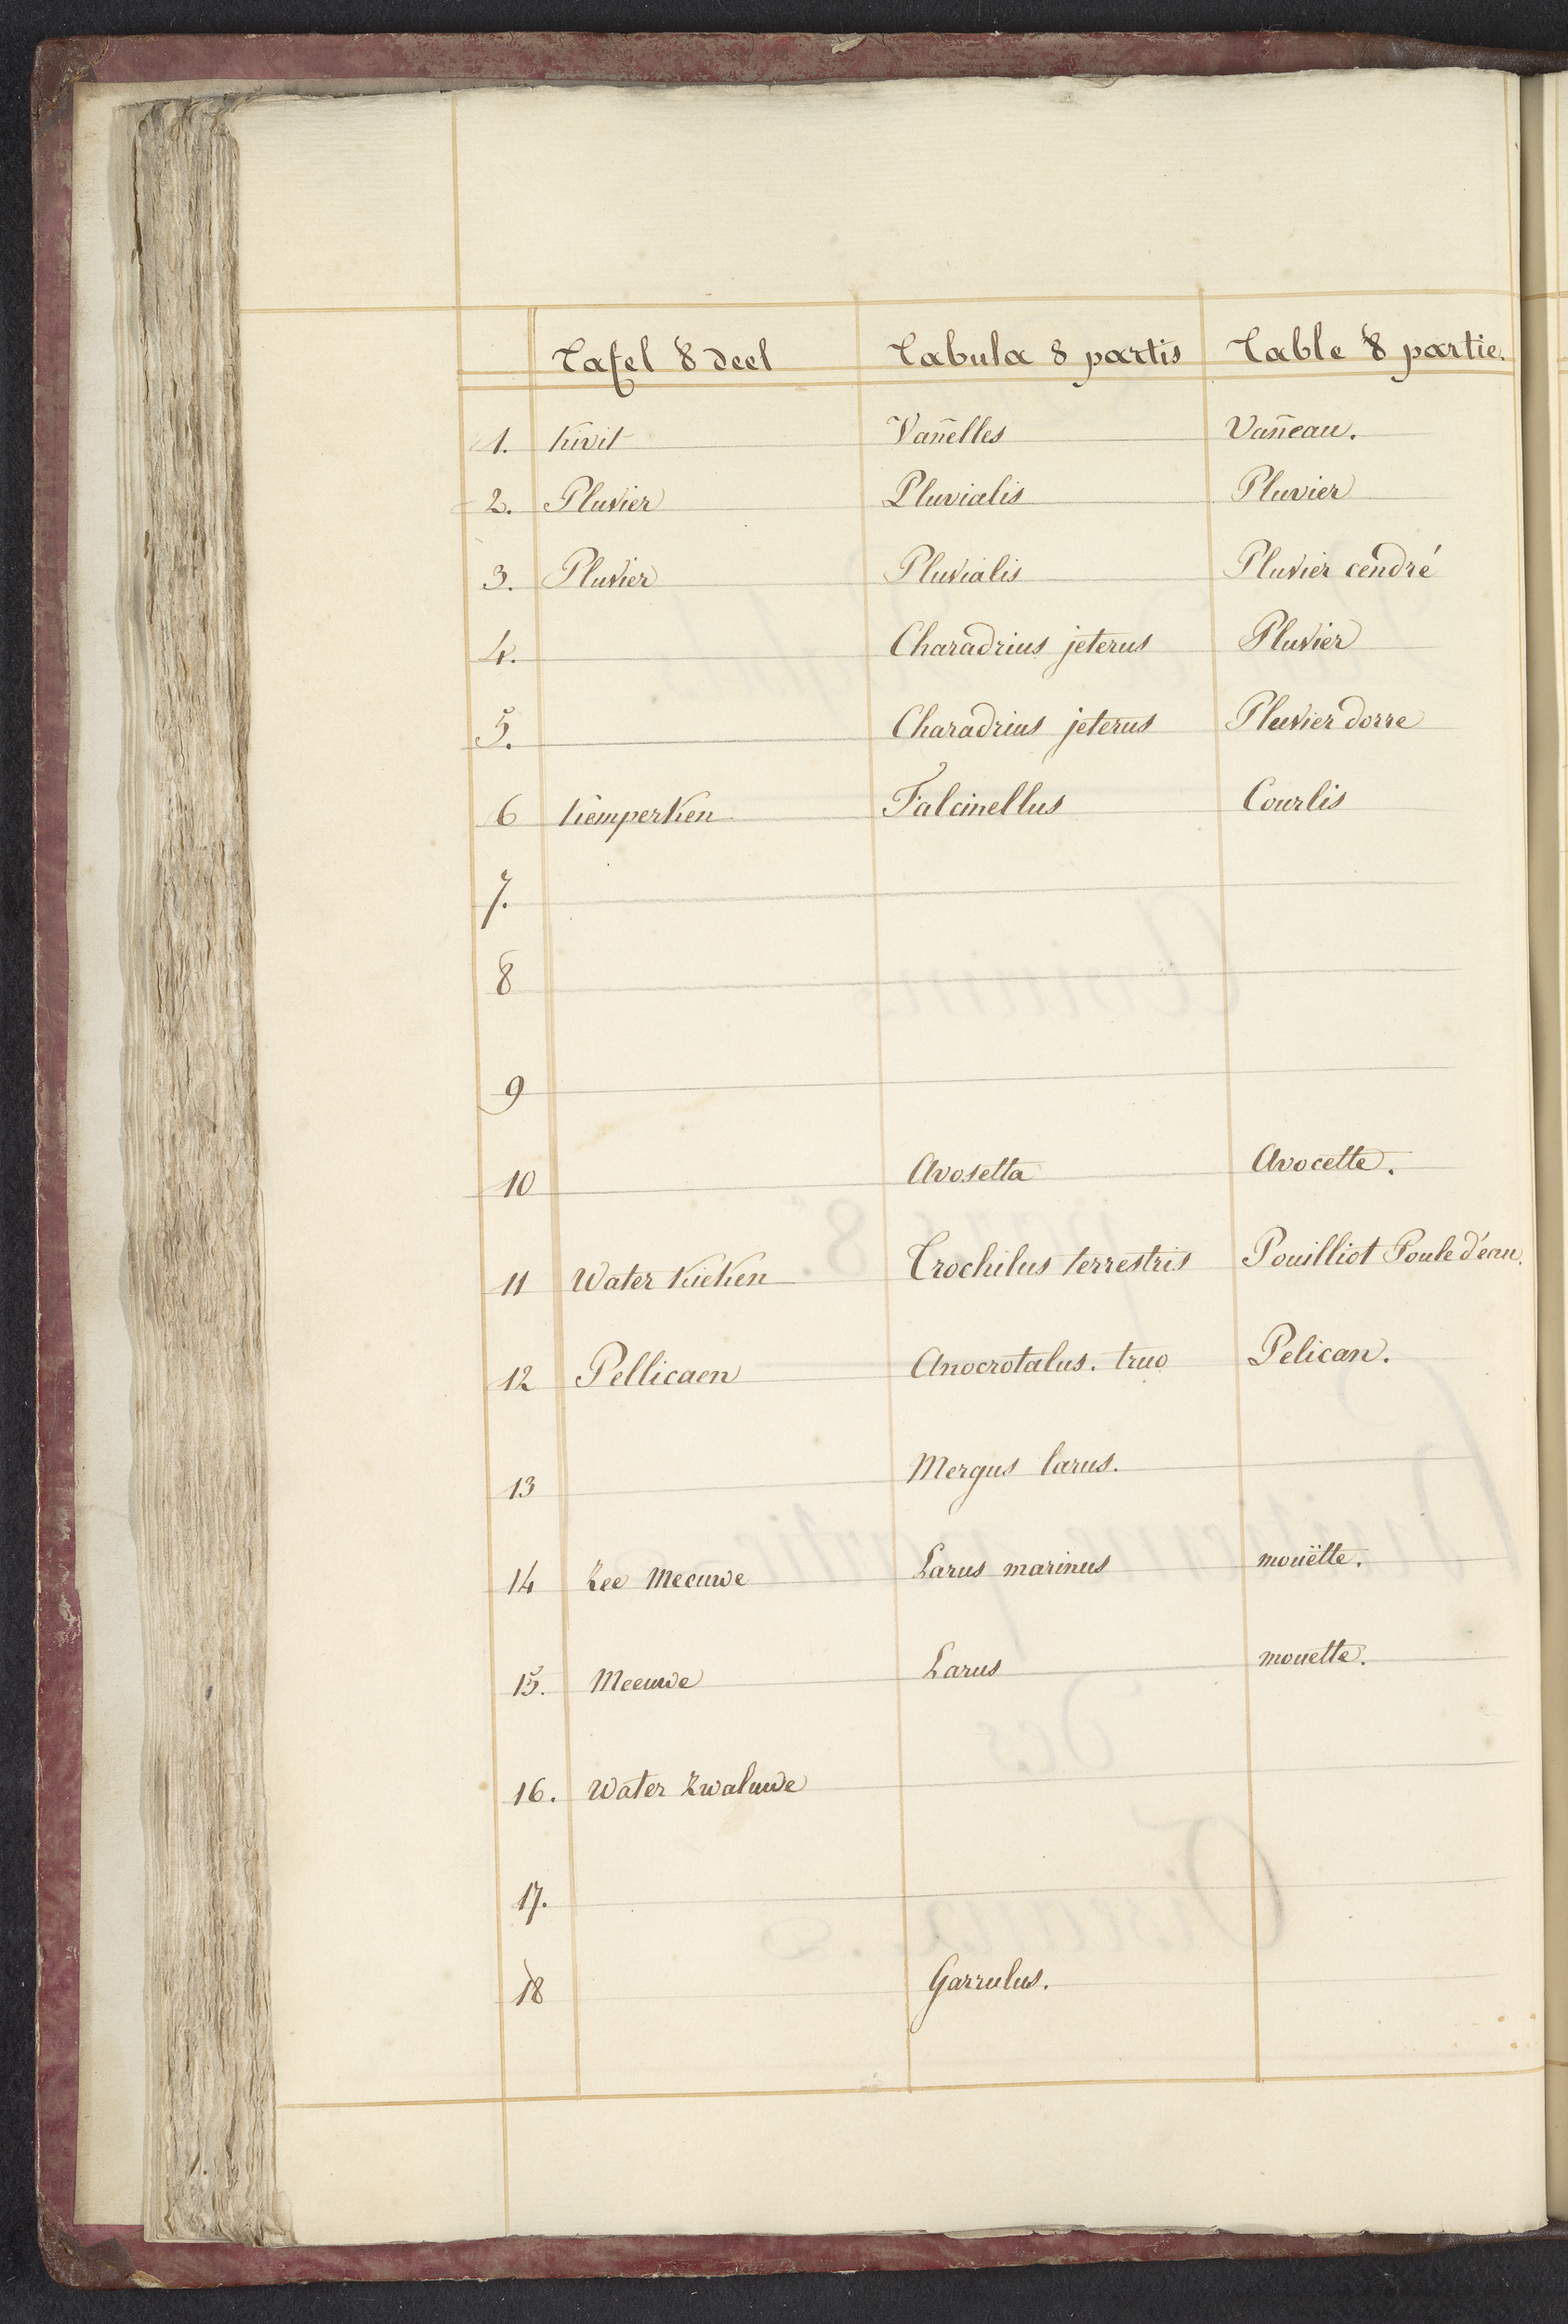 Tafel 8 deel Tabula 8 partis Table 8 partie.
1. Kivit Vañelles Vañeau.
2. Pluvier Pluvialis Pluvier
3. Pluvier Pluvialis Pluvier cendré
4. Charadrius jeterus Pluvier
5. Charadrius jeterus Pluvier dorre
6 Kemperken Falcinellus Courlis
7.
8
9
10 Avosetta Avocette.
11 Water Kieken Trochilus terrestris Pouilliot Poule d'eau.
12 Pellicaen Anocrotalus. truo Pelican.
13 Mergus larus.
14 Zee Meeuwe Larus marinus mouëtte.
15. Meeuwe Larus mouette.
16. Water Zwaluwe
17.
18 Garrulus.